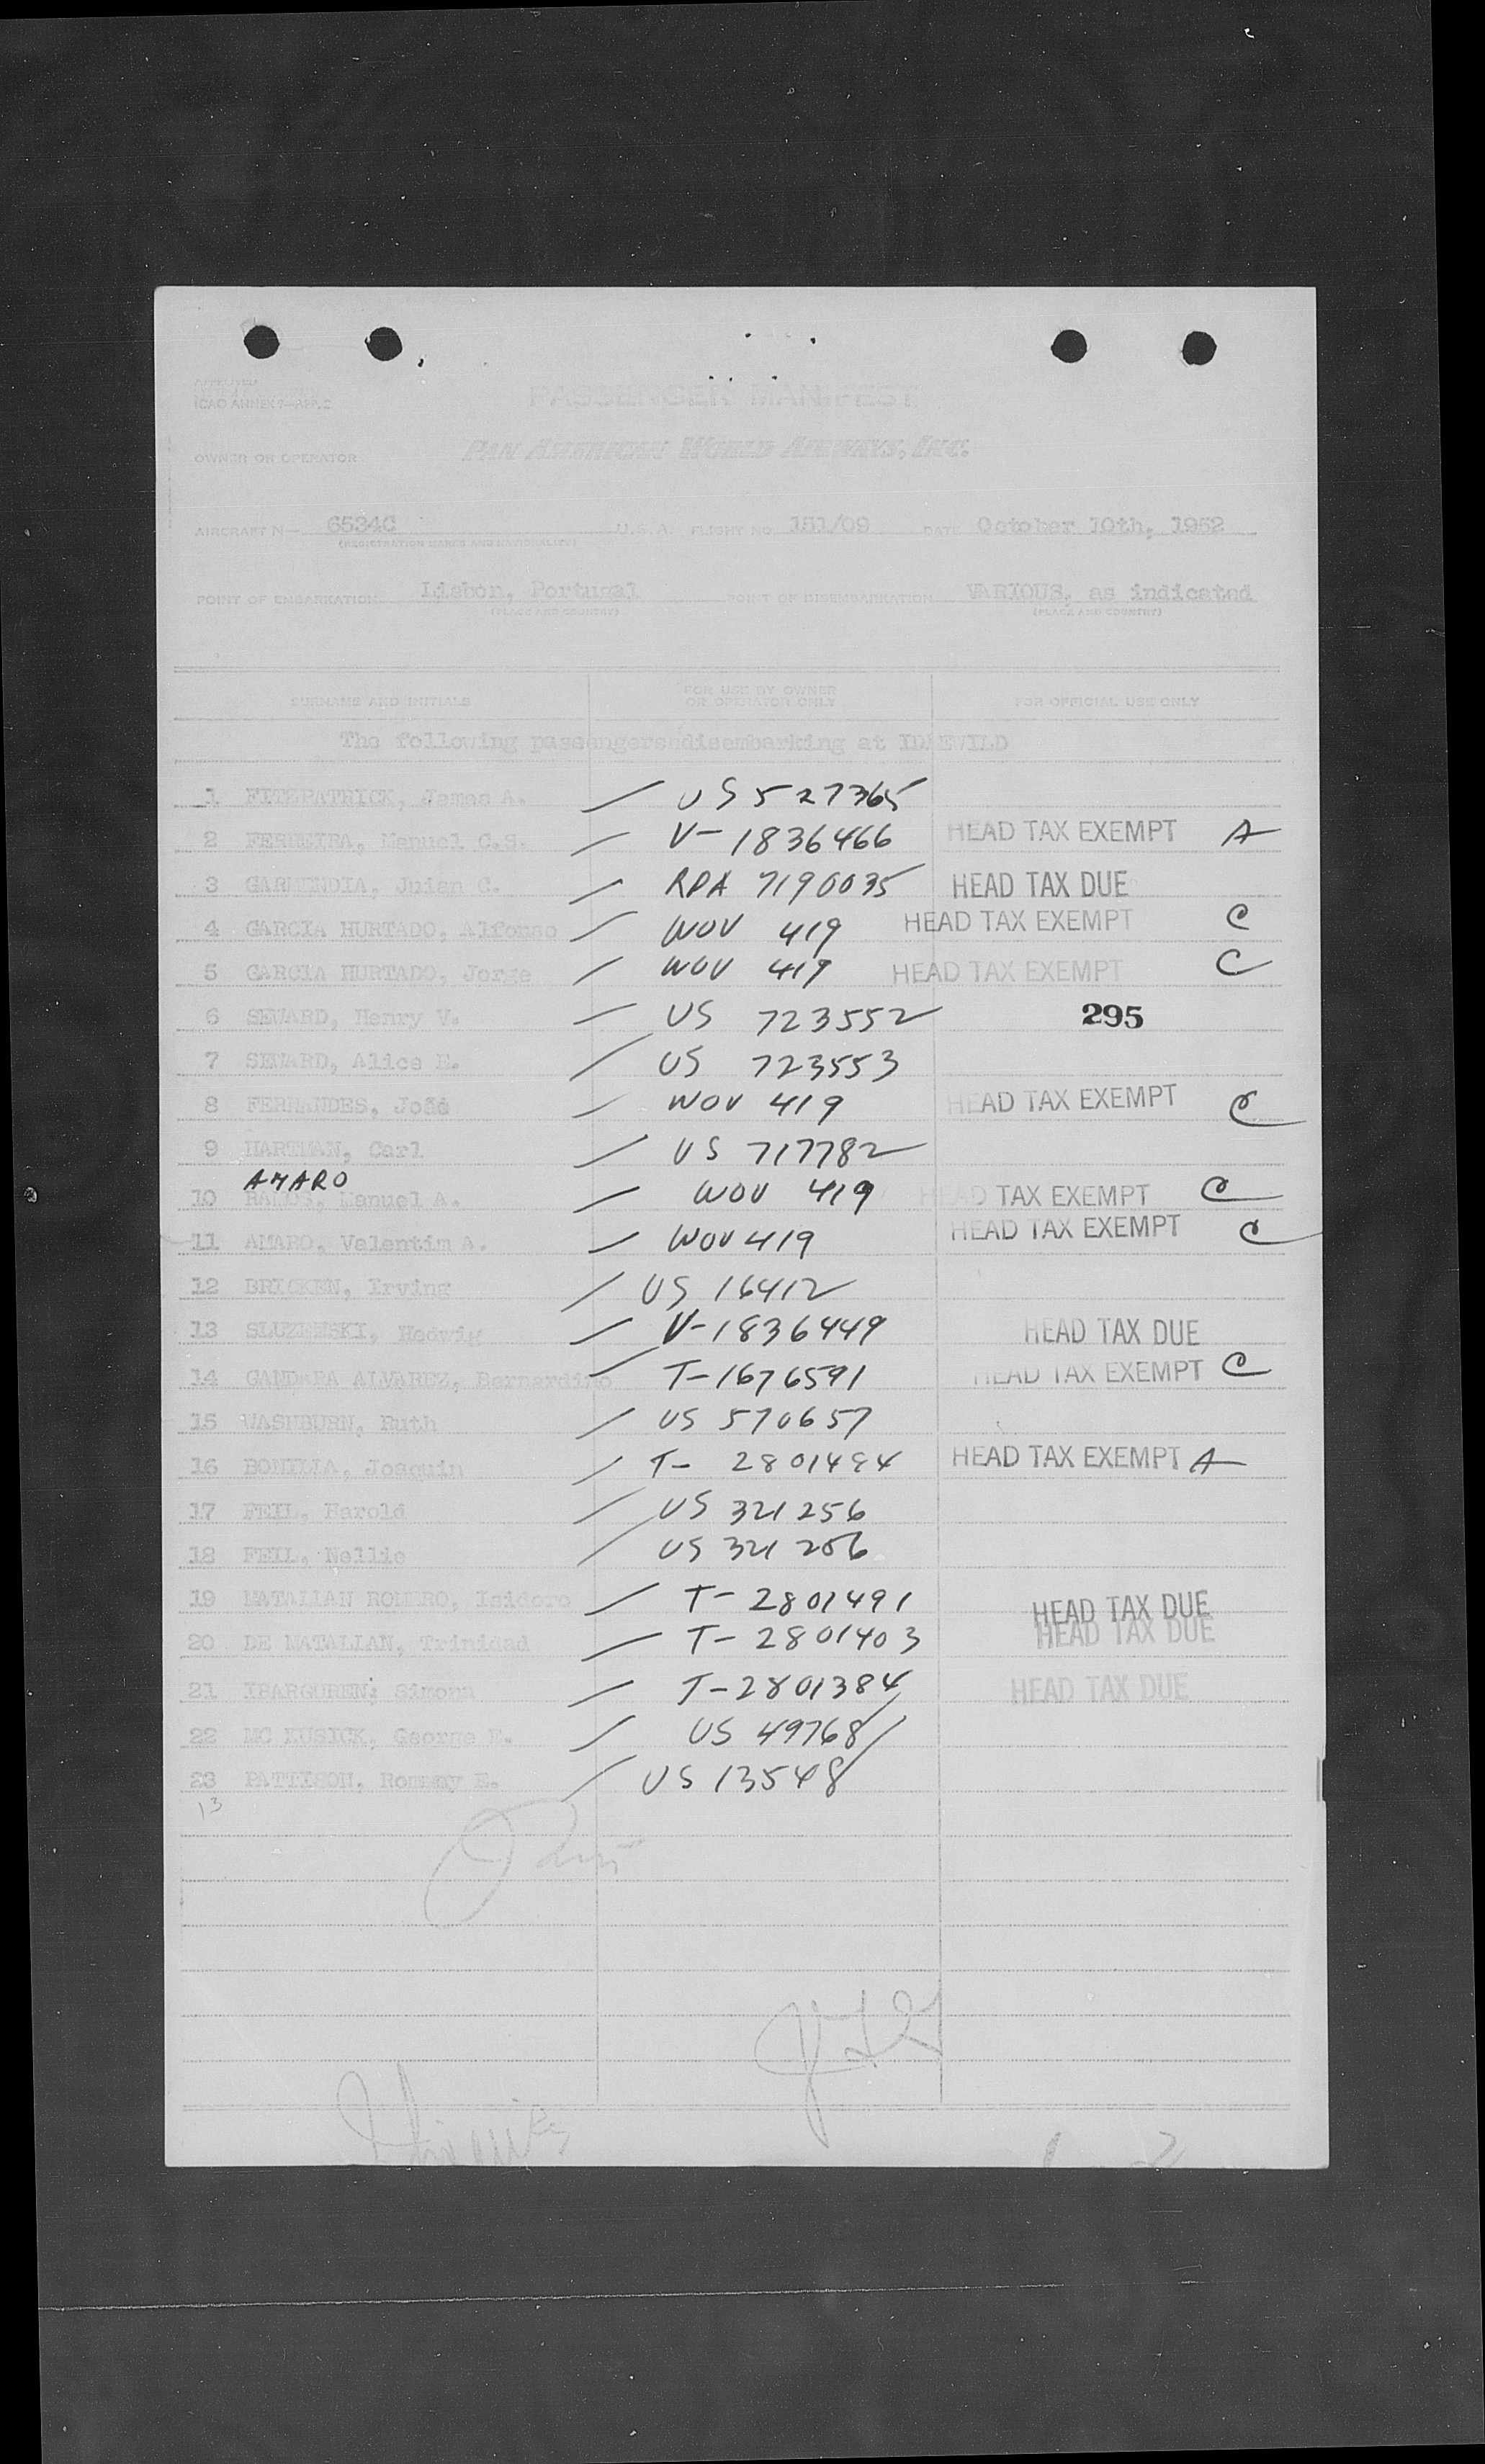 APPROVED
ICAO ANNEX 9—APP. 2
PASSENGER MANIFEST
OWNER OR OPERATOR PAN AMERICAN WORLD AIRWAYS, INC.
AIRCRAFT N— 6534C U.S.A. FLIGHT NO 151/09 DATE October 10th, 1952
(REGISTRATION MARKS AND NATIONALITY)
POINT OF EMBARKATION Lisbon, Portugal POINT OF DISEMBARKATION VARIOUS, as indicated
(PLACE AND COUNTRY) (PLACE AND COUNTRY)
SURNAME AND INITIALS FOR USE BY OWNER OR OPERATOR ONLY FOR OFFICIAL USE ONLY
The following passengers disembarking at IDLEWILD
1 FITZPATRICK, James A. / US 527365
2 FERREIRA, Manuel C.S. / V-1836466 HEAD TAX EXEMPT A
3 GARMENDIA, Julian C. / RPA 7190035 HEAD TAX DUE
4 GARCIA HURTADO, Alfonso / WOV 419 HEAD TAX EXEMPT C
5 GARCIA HURTADO, Jorge / WOV 419 HEAD TAX EXEMPT C
6 SEWARD, Henry V. / US 723552 295
7 SEWARD, Alice E. / US 723553
8 FERNANDES, João / WOV 419 HEAD TAX EXEMPT C
9 HARTMAN, Carl / US 717782
AMARO
10 RAMOS, Manuel A. / WOV 419 HEAD TAX EXEMPT C
11 AMARO, Valentim A. / WOV 419 HEAD TAX EXEMPT C
12 BRICKEN, Irving / US 16412
13 SLUZEWSKI, Hedwig / V-1836449 HEAD TAX DUE
14 GANDARA ALVAREZ, Bernardino / T-1676591 HEAD TAX EXEMPT C
15 WASHBURN, Ruth / US 570657
16 BONILLA, Joaquin / T-2801484 HEAD TAX EXEMPT A
17 FEIL, Harold / US 321256
18 FEIL, Nellie / US 321256
19 MATALLAN ROMERO, Isidoro / T-2801491 HEAD TAX DUE
20 DE MATALLAN, Trinidad / T-2801403 HEAD TAX DUE
21 IBARGUREN, Simona / T-2801384 HEAD TAX DUE
22 MC KUSICK, George E. / US 49768/
23 PATTISON, Rommey E. / US 13548/
13